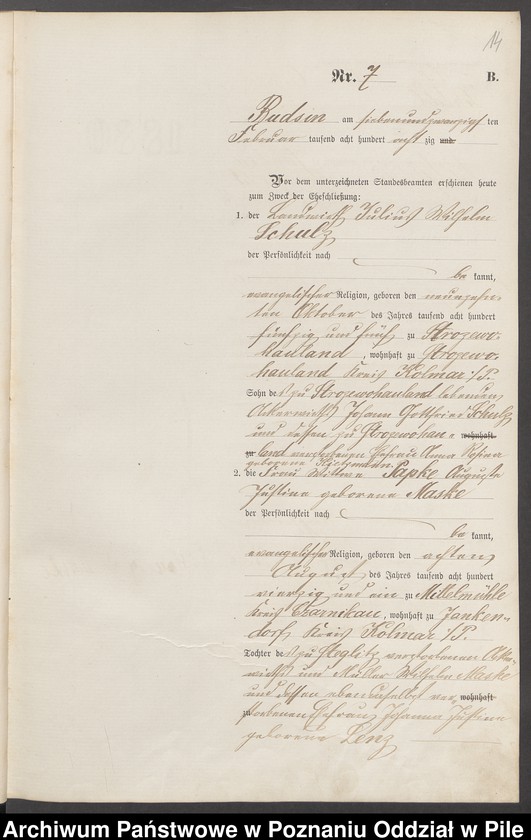 14
Nr. 7 B.
Budsin am siebenundzwanzigsten
Februar tausend acht hundert achtzig und
Vor dem unterzeichneten Standesbeamten erschienen heute
zum Zweck der Eheschließung:
1. der Landwirth Julius Wilhelm
Schulz
der Persönlichkeit nach
be kannt,
evangelischer Religion, geboren den neunzehn-
ten Oktober des Jahres tausend acht hundert
fünfzig und fünf zu Strozewo-
hauland, wohnhaft zu Strozewo-
hauland Kreis Kolmar i/P.
Sohn des zu Strozewohauland lebenden
Ackerwirth Johann Gottfried Schulz
und dessen zu Strozewohau- wohnhaft
zu land verstorbenen Ehefrau Anna Rosina
geborene
2. die Frau Wittwe Papke Auguste
Justine geborene Maske
der Persönlichkeit nach
be kannt,
evangelischer Religion, geboren den achten
August des Jahres tausend acht hundert
vierzig und ein zu Mittelmühle
Kreis Czarnikau, wohnhaft zu Janken-
dorf Kreis Kolmar i/P.
Tochter des zu Steglitz verstorbenen Acker-
wirth und Müller Wilhelm Maske
und dessen ebendaselbst ver- wohnhaft
zu storbenen Ehefrau Johanna Justine
geborene Lenz
Archiwum Państwowe w Poznaniu Oddział w Pile